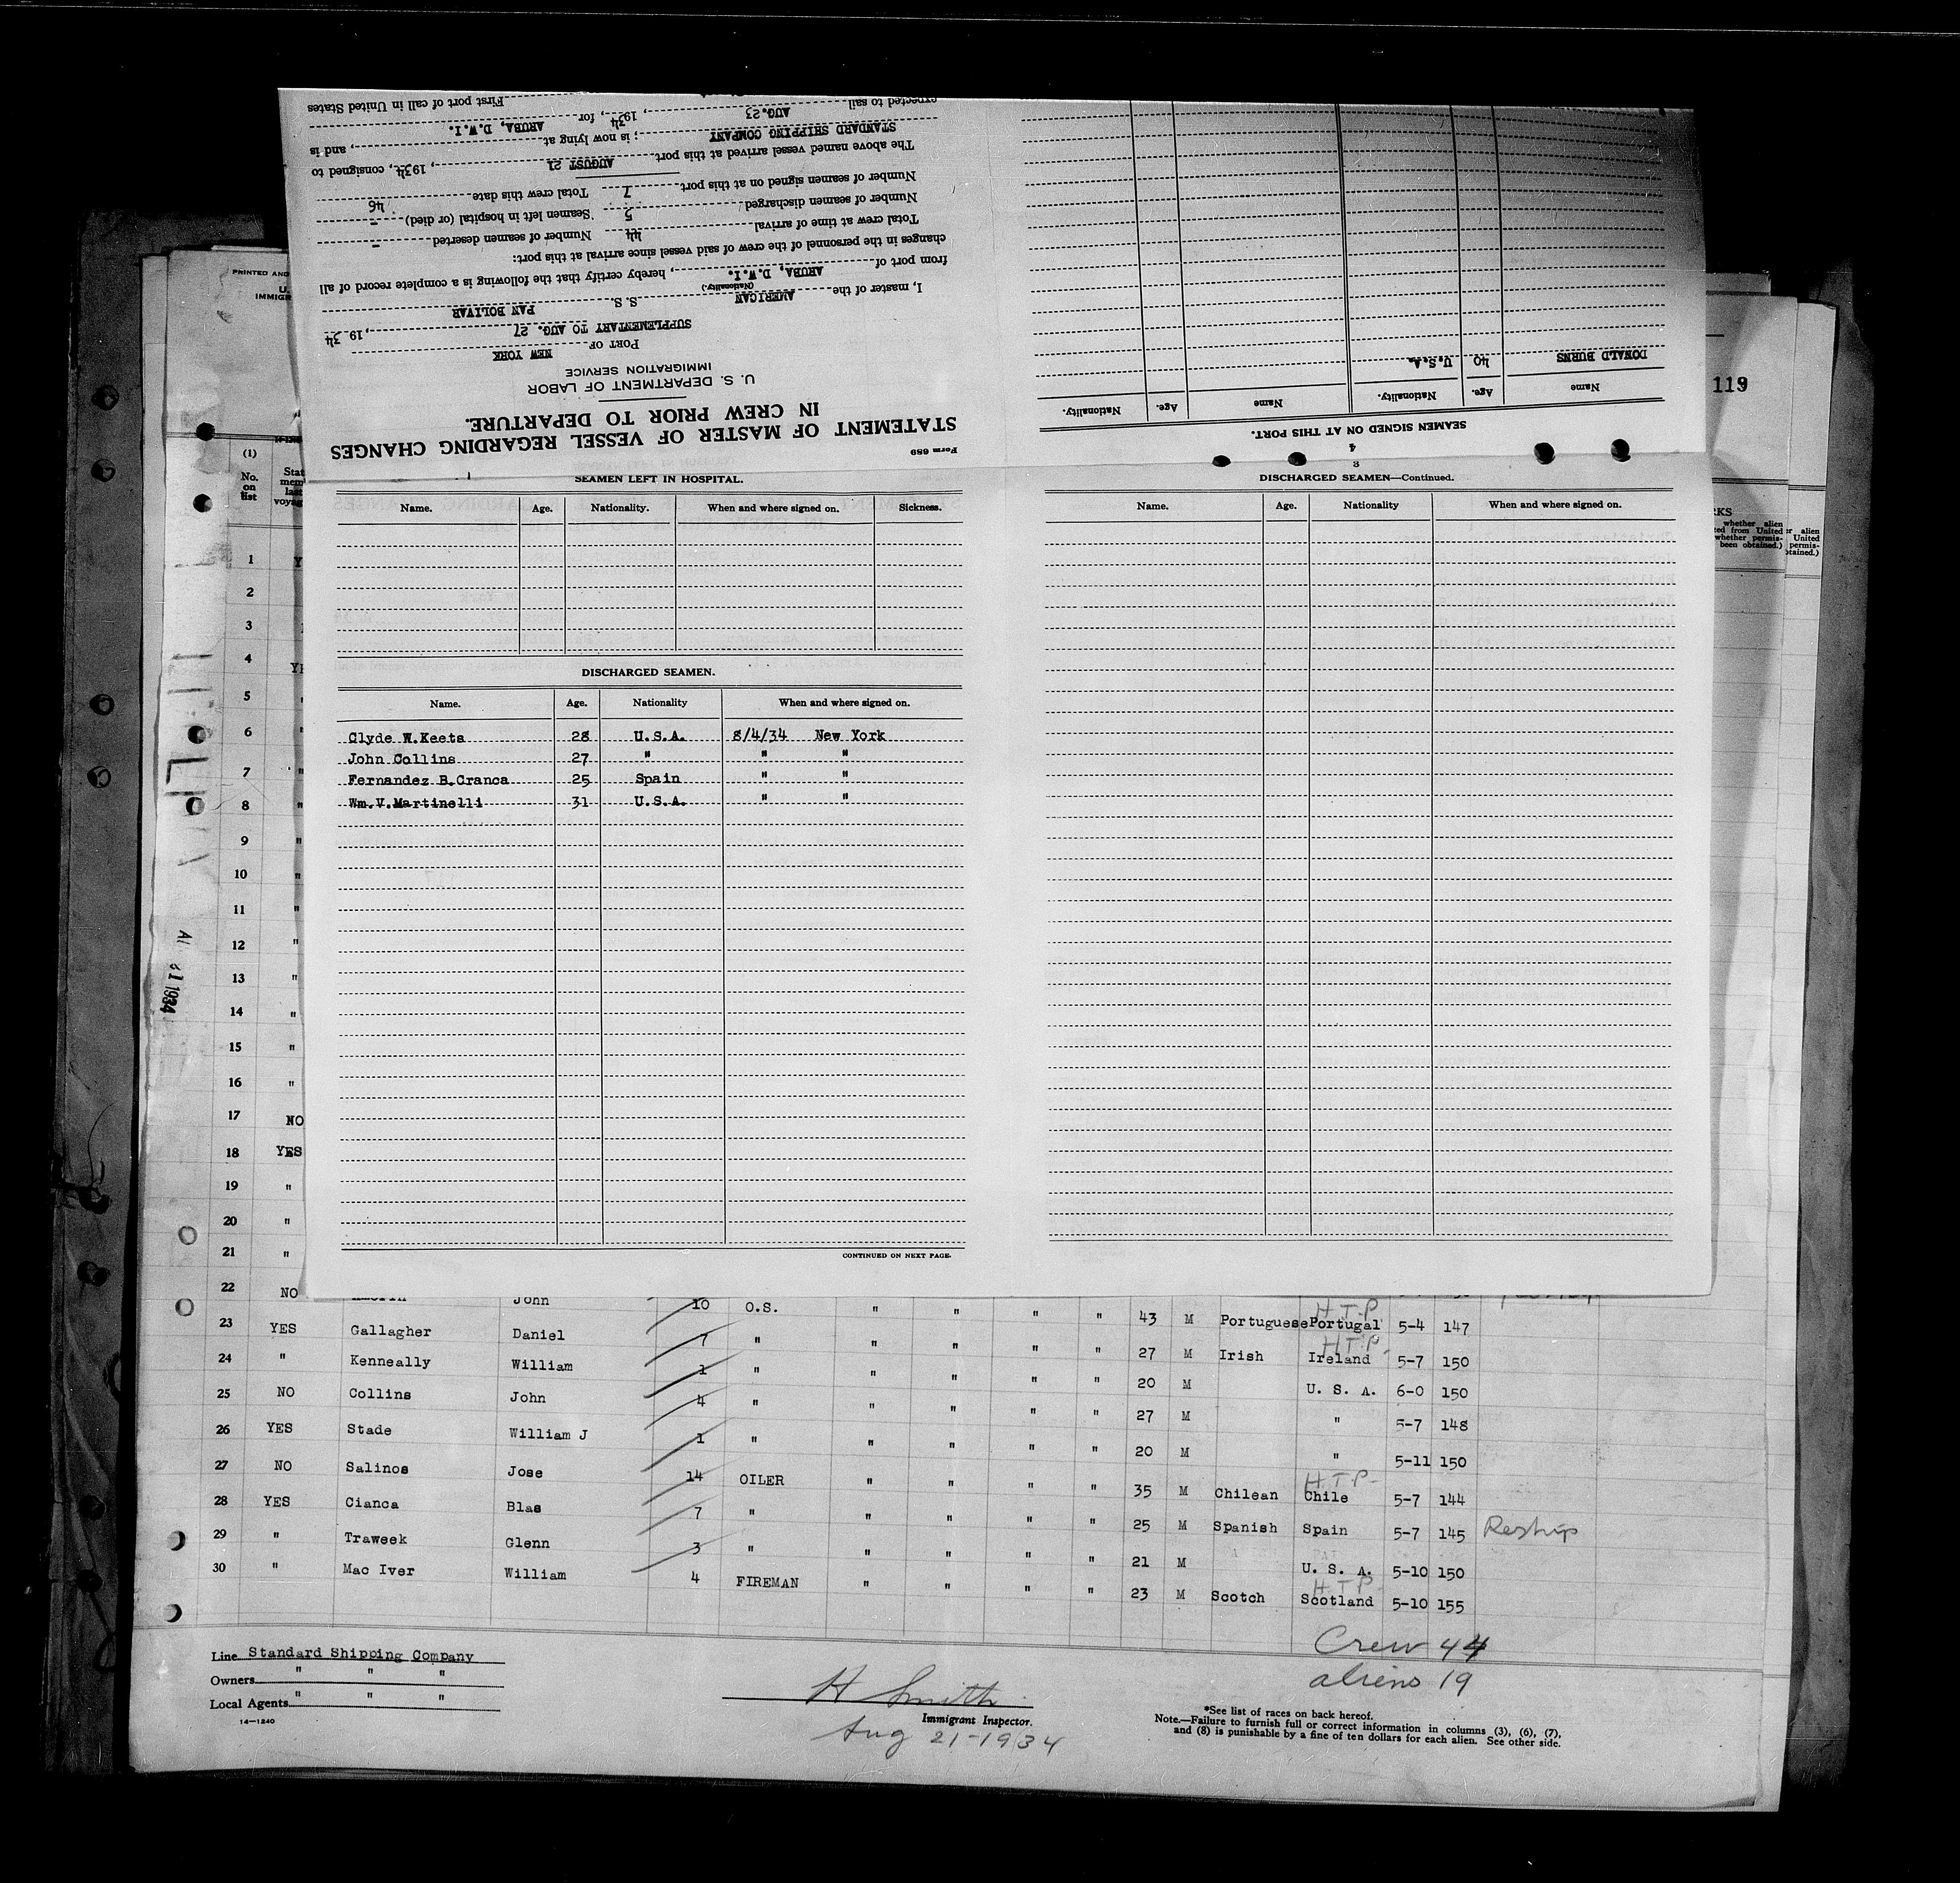 Form 689
STATEMENT OF MASTER OF VESSEL REGARDING CHANGES
IN CREW PRIOR TO DEPARTURE.
U. S. DEPARTMENT OF LABOR
IMMIGRATION SERVICE
PORT OF NEW YORK
SUPPLEMENTARY TO AUG. 27, 1934
I, master of the AMERICAN S. S. PAN BOLIVAR
(Nationality.)
from port of ARUBA, D.W.I., hereby certify that the following is a complete record of all
changes in the personnel of the crew of said vessel since arrival at this port:
Total crew at time of arrival 44 Number of seamen deserted -
Number of seamen discharged 5 Seamen left in hospital (or died) -
Number of seamen signed on at this port 7 Total crew this date 46
The above named vessel arrived at this port AUGUST 21, 1934, consigned to
STANDARD SHIPPING COMPANY; is now lying at , and is
expected to sail AUG.23, 1934, for ARUBA, D.W.I.
First port of call in United States
4
SEAMEN SIGNED ON AT THIS PORT.
Name Age. Nationality. Name Age. Nationality.
DONALD BURNS 40 U.S.A.
SEAMEN LEFT IN HOSPITAL.
Name. Age. Nationality. When and where signed on. Sickness.
DISCHARGED SEAMEN.
Name. Age. Nationality When and where signed on.
Clyde W.Keets 28 U.S.A. 8/4/34 New York
John Collins 27 " " "
Fernandez B.Cranca 25 Spain " "
Wm.V.Martinelli 31 U.S.A. " "
CONTINUED ON NEXT PAGE.
3
DISCHARGED SEAMEN—Continued.
Name. Age. Nationality When and where signed on.
119
PRINTED AND
U.
IMMIGR
(1)
No.
on
list
Stat
mem
last
voyag
RKS
whether alien
ted from United
whether permis-
been obtained.)
r alien
United
permis-
btained.)
1934
1 Y
2
3
4 YE
5 "
6 "
7 "
8 "
9 "
10 "
11 "
12 "
13 "
14 "
15 "
16 "
17 NO
18 YES
19 "
20 "
21 "
22 NO John 10 O.S. " " " " 43 M Portuguese Portugal H.T.P 5-4 147
23 YES Gallagher Daniel 7 " " " " " 27 M Irish Ireland H.T.P. 5-7 150
24 " Kenneally William 1 " " " " " 20 M U. S. A. 6-0 150
25 NO Collins John 4 " " " " " 27 M " 5-7 148
26 YES Stade William J 1 " " " " " 20 M " 5-11 150
27 NO Salinos Jose 14 OILER " " " " 35 M Chilean Chile H.T.P. 5-7 144
28 YES Cianca Blas 7 " " " " " 25 M Spanish Spain 5-7 145 Reship
29 " Traweek Glenn 3 " " " " " 21 M U. S. A. 5-10 150
30 " Mac Iver William 4 FIREMAN " " " " 23 M Scotch Scotland H.T.P. 5-10 155
Crew 44
aliens 19
Line Standard Shipping Company
Owners " " "
Local Agents " " "
14—1240
H Smith
Immigrant Inspector.
Aug 21-1934
*See list of races on back hereof.
Note.—Failure to furnish full or correct information in columns (3), (6), (7),
and (8) is punishable by a fine of ten dollars for each alien. See other side.